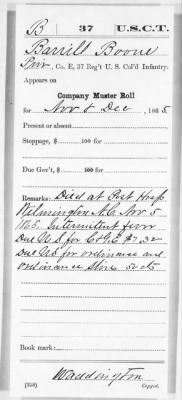 B 37 U.S.C.T.
Barrill Boone
Priv., Co. E, 37 Reg't U. S. Col'd Infantry.
Appears on
Company Muster Roll
for Nov & Dec, 1865
Present or absent
Stoppage, $ 100 for
Due Gov't, $ 100 for
Remarks: Died at Post Hosp
Wilmington N.C. Nov 5
1865. Intermittent fever
Due U S for C & G E $7.32
Due U.S for ordinance and
ordinance stores 50 cts
Book mark:
Waddington
(358) Copyist.